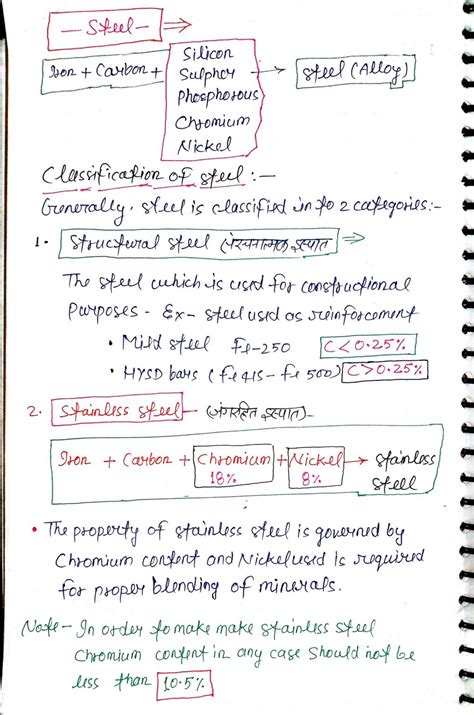 — Steel — ⇒
Iron + Carbon + Silicon Sulphor Phosphorous Chromium Nickel → Steel (Alloy)
Classification of steel :—
Generally, steel is classified in to 2 categories:-
1. Structural steel (संरचनात्मक इस्पात) ⇒
The steel which is used for constructional
Purposes - Ex- steel used as reinforcement
• Mild steel Fe-250 C<0.25%
• HYSD bars (fe 415 - fe 500) C>0.25%
2. Stainless steel - (जंगरहित इस्पात)-
Iron + Carbon + Chromium 18% + Nickel 8% → stainless
steel
• The property of stainless steel is governed by
Chromium content and Nickel used is required
for proper blending of minerals.
Note - In order to make make stainless steel
Chromium content in any case should not be
less than 10.5%